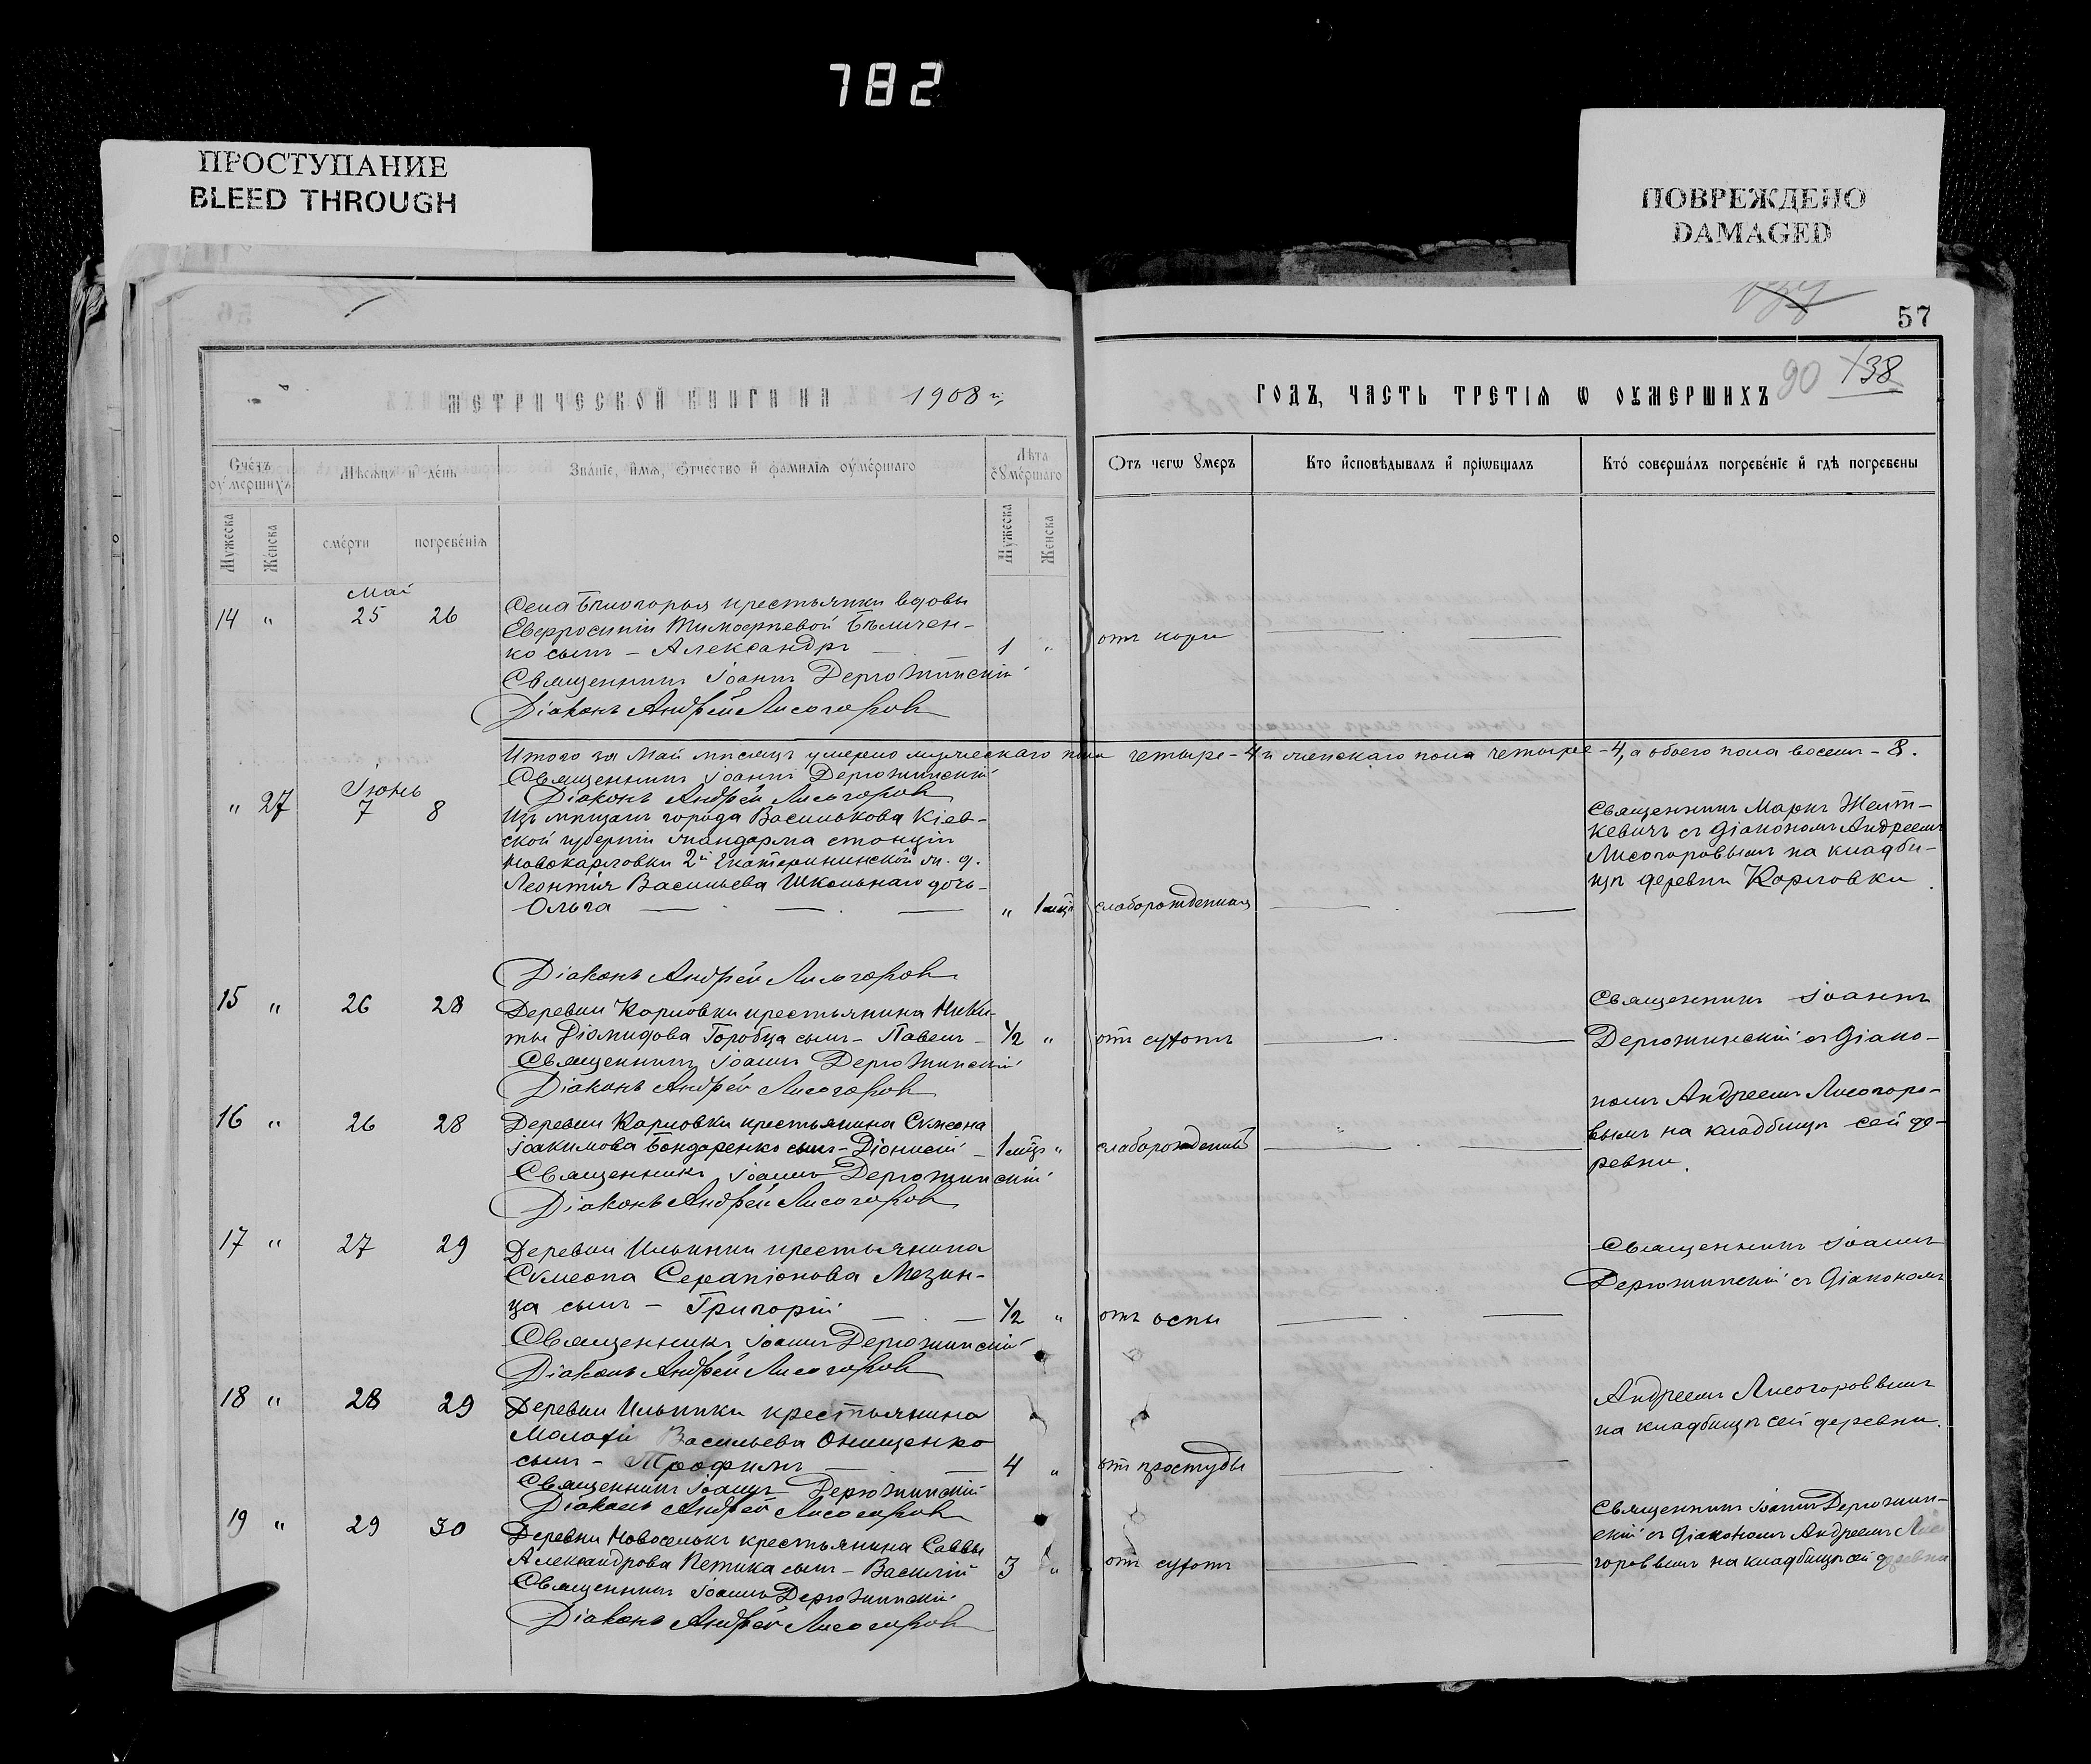 782
ПРОСТУПАНИЕ
BLEED THROUGH
ПОВРЕЖДЕНО
DAMAGED
57
МЕТРИЧЕСКОЙ КНИГИ НА 1908 й
ГОДЪ, ЧАСТЬ ТРЕТІѦ Ѡ ОУМЕРШИХЪ
90 138
Счётъ оумершихъ
Мѣсяцъ и день
Званіе, имѧ, отчество и фамиліѧ оумершаго
Лѣта оумершаго
Отъ чегѡ оумеръ
Кто исповѣдывалъ и пріѡбщалъ
Кто совершалъ погребеніе и гдѣ погребены
Мужеска
Женска
смерти
погребеніѧ
Мужеска
Женска
Май
14 " 25 26
Села Бѣлогорья крестьянки вдовы
Евфросиніи Тимофѣевой Бѣличен-
ко сынъ - Александръ 1 " отъ кори
Священникъ Іоаннъ Дерюжинскій
Діаконъ Андрей Лисогоровъ
Итого за Май мѣсяцъ умерло мужескаго пола четыре - 4 и женскаго пола четыре - 4, а обоего пола восемь - 8.
Священникъ Іоаннъ Дерюжинскій
Діаконъ Андрей Лисогоровъ
Іюнь
" 27 7 8
Изъ мѣщанъ города Василькова Кіев-
ской губерніи жандарма станціи
Новокарловки 2й Екатерининской ж. д.
Леонтія Васильева Школьнаго дочь-
Ольга " 1 мѣс. слаборожденная
Священникъ Маркъ Желт-
кевичъ съ Діакономъ Андреемъ
Лисогоровымъ на кладби-
щѣ деревни Карловки
Діаконъ Андрей Лисогоровъ
15 " 26 28
Деревни Карловки крестьянина Ники-
ты Діомидова Горобца сынъ - Павелъ - 1/2 " отъ сухотъ
Священникъ Іоаннъ Дерюжинскій
Діаконъ Андрей Лисогоровъ
16 " 26 28
Деревни Карловки крестьянина Сѵмеона
Іоакимова Бондаренко сынъ - Діонисій - 1 мѣс. " слаборожденный
Священникъ Іоаннъ Дерюжинскій
Діаконъ Андрей Лисогоровъ
Священникъ Іоаннъ
Дерюжинскій съ Діако-
номъ Андреемъ Лисогоро-
вымъ на кладбищѣ сей де-
ревни.
17 " 27 29
Деревни Ильинки крестьянина
Сѵмеона Серапіонова Мезин-
ца сынъ - Григорій 1/2 " отъ оспы
Священникъ Іоаннъ Дерюжинскій
Діаконъ Андрей Лисогоровъ
18 " 28 29
Деревни Ильинки крестьянина
Малахіи Васильева Онищенко
сынъ - Трофимъ 4 " отъ простуды
Священникъ Іоаннъ Дерюжинскій
Діаконъ Андрей Лисогоровъ
Священникъ Іоаннъ
Дерюжинскій съ Діакономъ
Андреемъ Лисогоровымъ
на кладбищѣ сей деревни.
19 " 29 30
Деревни Новоселокъ крестьянина Саввы
Александрова Петика сынъ - Василій 3 " отъ сухотъ
Священникъ Іоаннъ Дерюжинскій
Діаконъ Андрей Лисогоровъ
Священникъ Іоаннъ Дерюжин-
скій съ Діакономъ Андреемъ Лисо
горовымъ на кладбищѣ сей деревни